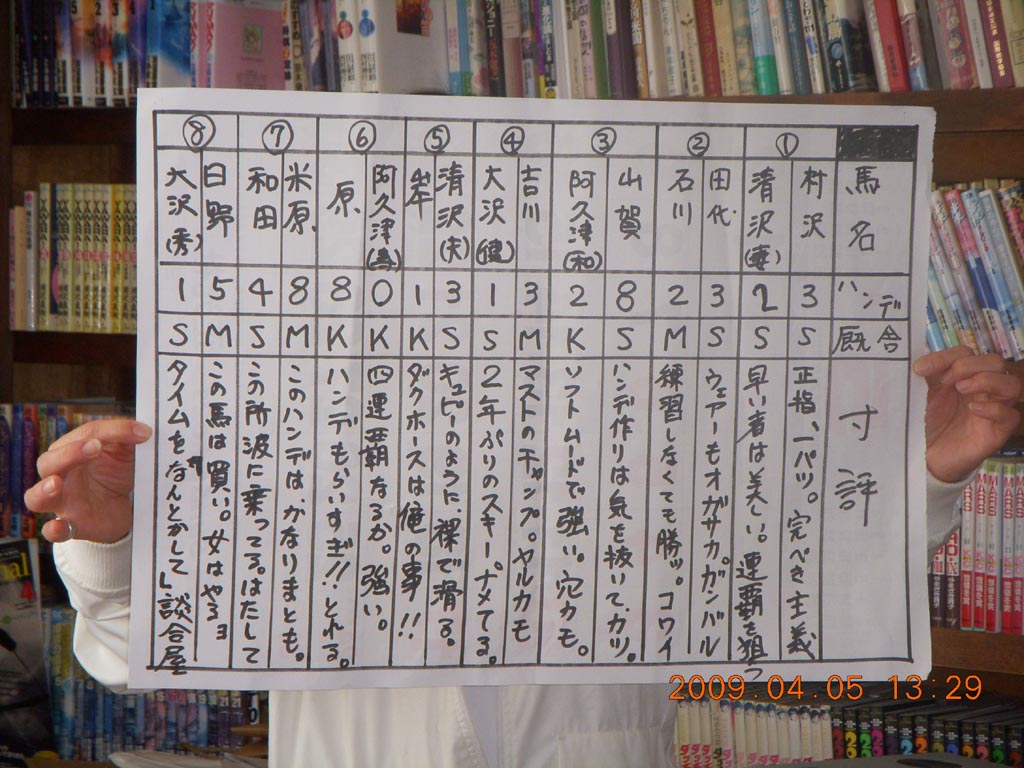 馬名 ハンデ 厩舎 寸評
① 村沢 3 S 正指、一パツ。完ぺき主義
清沢(寿) 2 S 早い者は美しい。連覇を狙っ
② 田代 3 S ウェアーもオガサカ。ガンバル
石川 2 M 練習しなくても勝ッ。コワイ
③ 山賀 8 S ハンデ作りは気を抜いて、カツ。
阿久津(和) 2 K ソフトムードで強い。穴カモ。
④ 吉川 3 M マストのチャンプ。ヤルカモ
大沢(健) 1 S 2年ぶりのスキー。ナメてる。
⑤ 清沢(夫) 3 S キュピーのように、裸で滑る。
1 K ダクホースは俺の事!!
⑥ 阿久津 0 K 四連覇なるか。強い。
原 8 K ハンデもらいすぎ!!とれる。
⑦ 米原 8 M このハンデは、かなりまとも。
和田 4 S この所波に乗ってる。はたして
⑧ 日野 5 M この馬は買い。女はやるョ
大沢(秀) 1 S タイムをなんとかして「談合屋」
2009.04.05 13:29